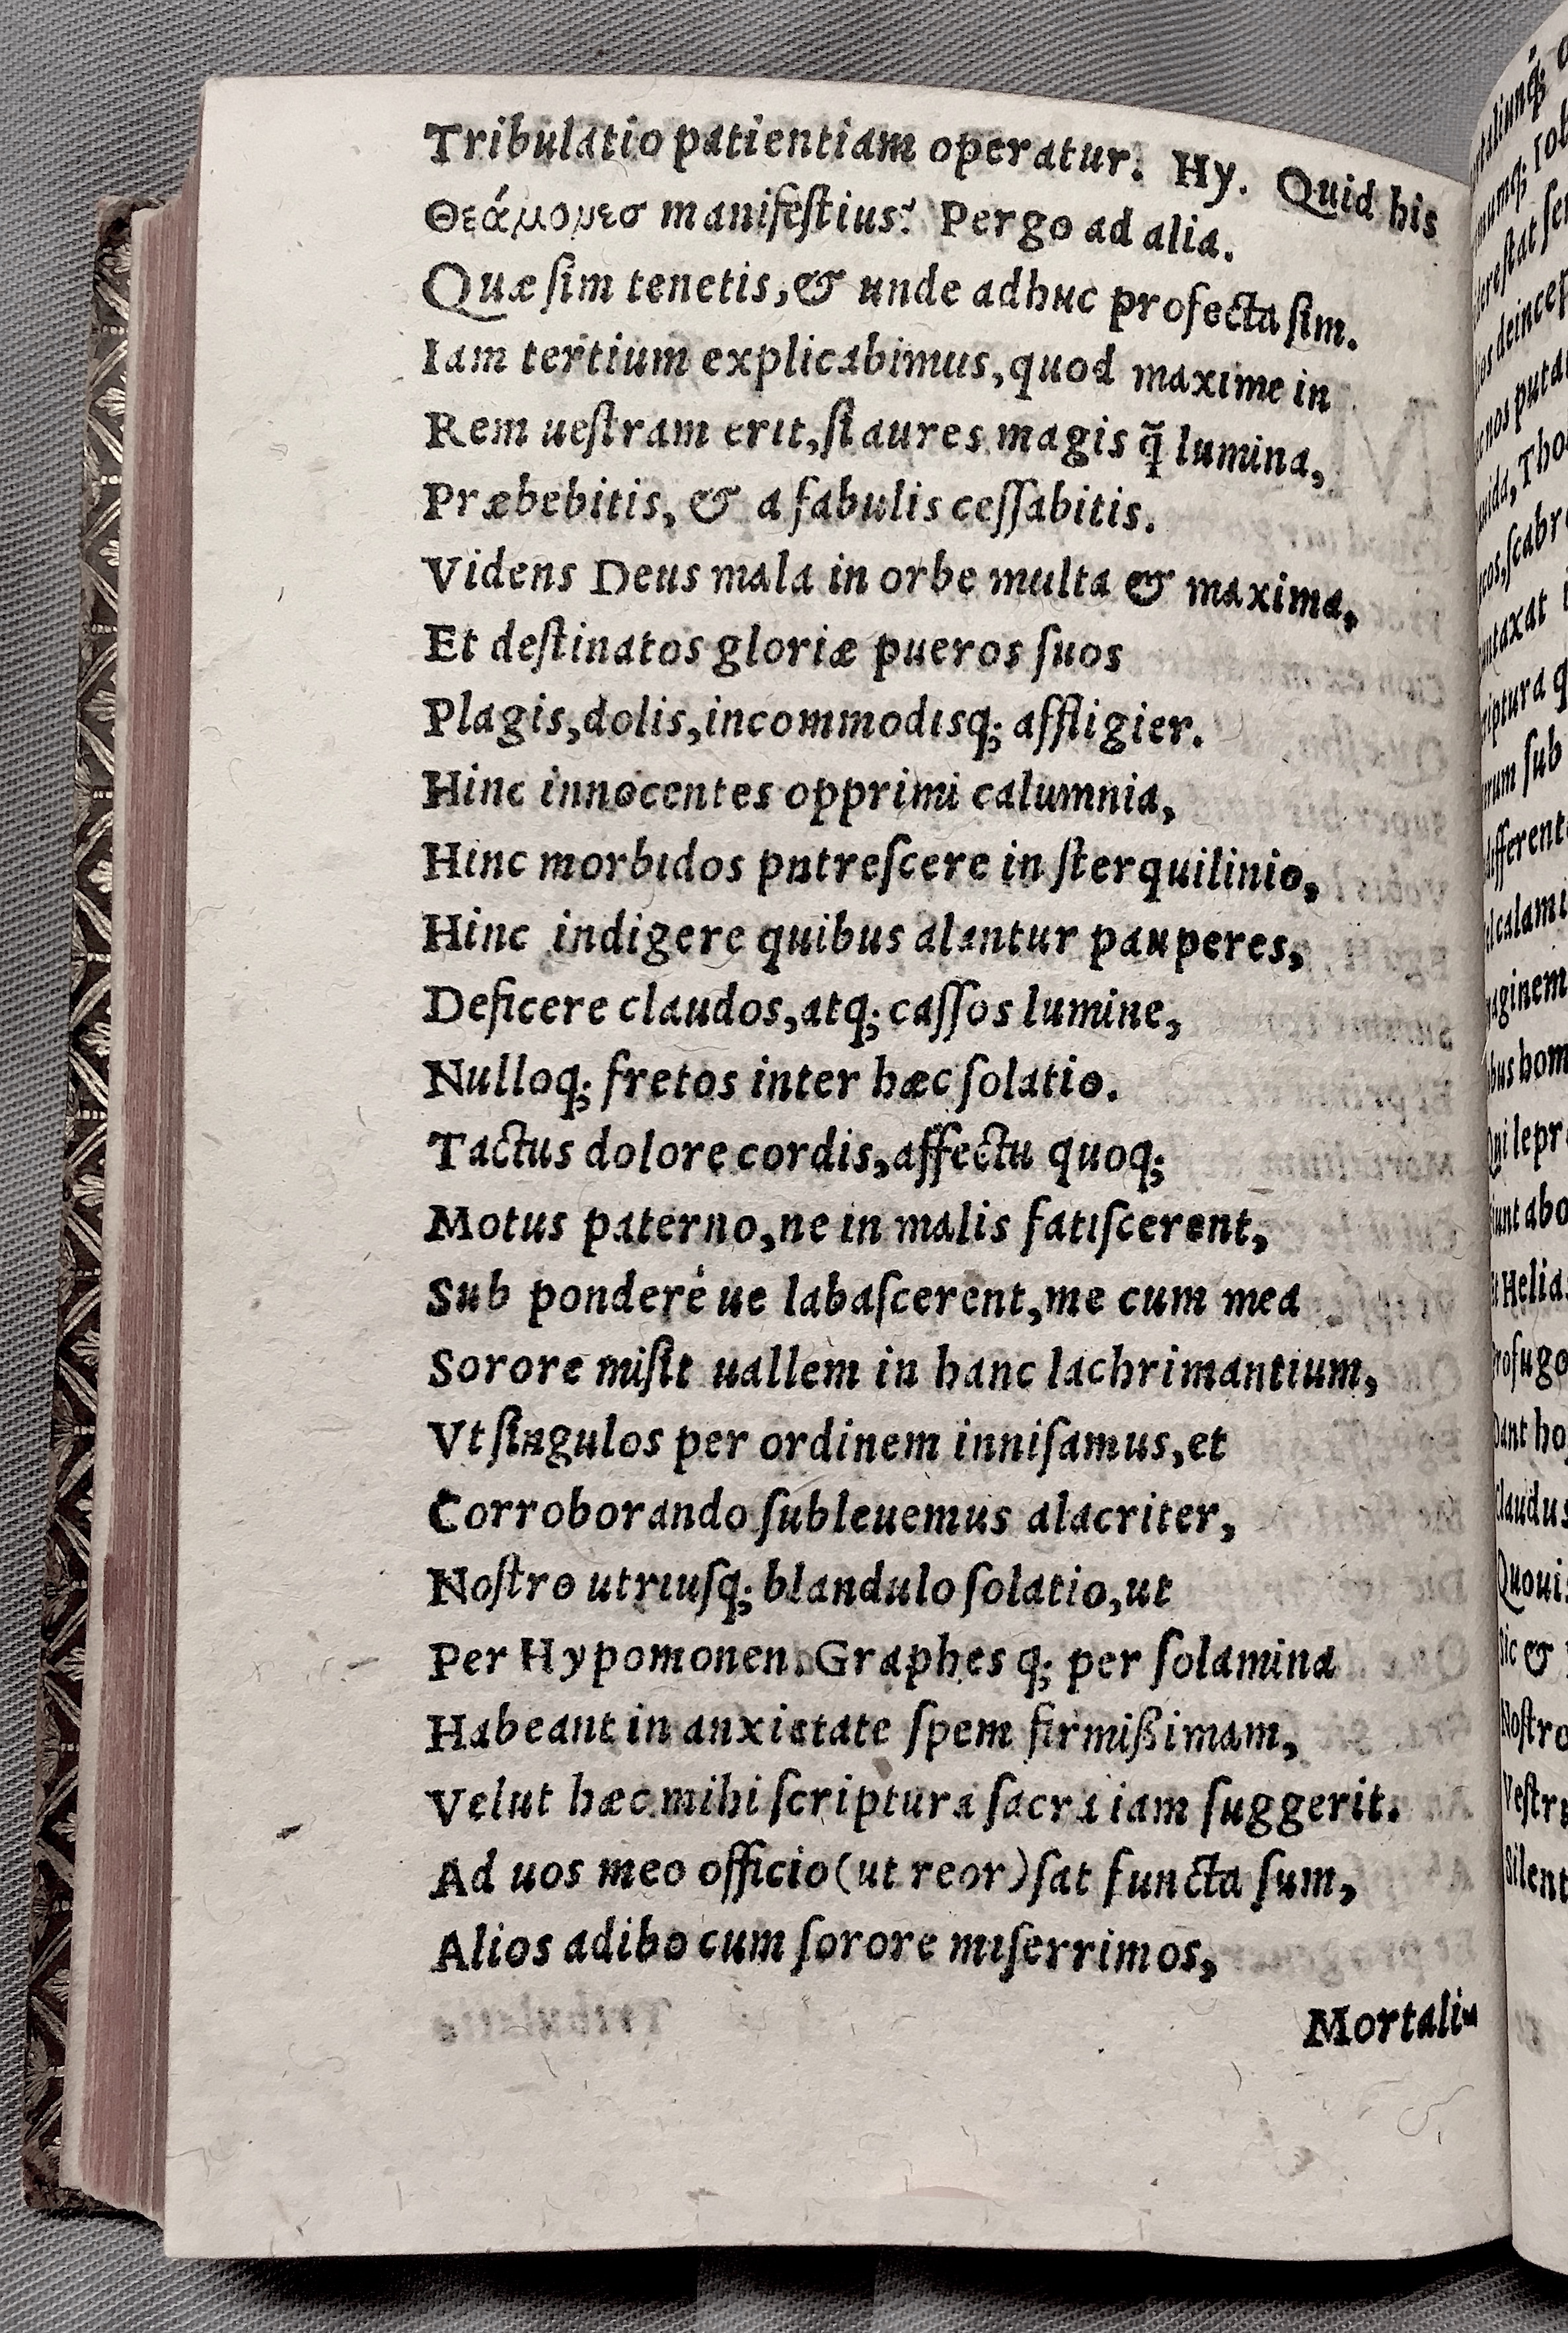 Tribulatio patientiam operatur. Hy. Quid his
Θεάμομεσ manifeſtius? Pergo ad alia.
Quæ ſim tenetis, & unde adhuc profecta ſim.
Iam tertium explicabimus, quod maxime in
Rem ueſtram erit, ſi aures magis q̃ lumina,
Præbebitis, & a fabulis ceſſabitis.
Videns Deus mala in orbe multa & maxima,
Et deſtinatos gloriæ pueros ſuos
Plagis, dolis, incommodisq; affligier.
Hinc innocentes opprimi calumnia,
Hinc morbidos pntreſcere in ſterquilinio,
Hinc indigere quibus alantur pauperes,
Deficere claudos, atq; caſſos lumine,
Nulloq; fretos inter hæc ſolatio.
Tactus dolore cordis, affectu quoq;
Motus paterno, ne in malis fatiſcerent,
Sub ponderé ue labaſcerent, me cum mea
Sorore miſit uallem in hanc lachrimantium,
Vt ſingulos per ordinem inniſamus, et
Corroborando ſubleuemus alacriter,
Noſtro utriuſq; blandulo ſolatio, ut
Per Hypomonen. Graphes q; per ſolamina
Habeant in anxietate ſpem firmißimam,
Velut hæc mihi ſcriptura ſacra iam ſuggerit.
Ad uos meo officio (ut reor) ſat functa ſum,
Alios adibo cum ſorore miſerrimos,
Mortaliu